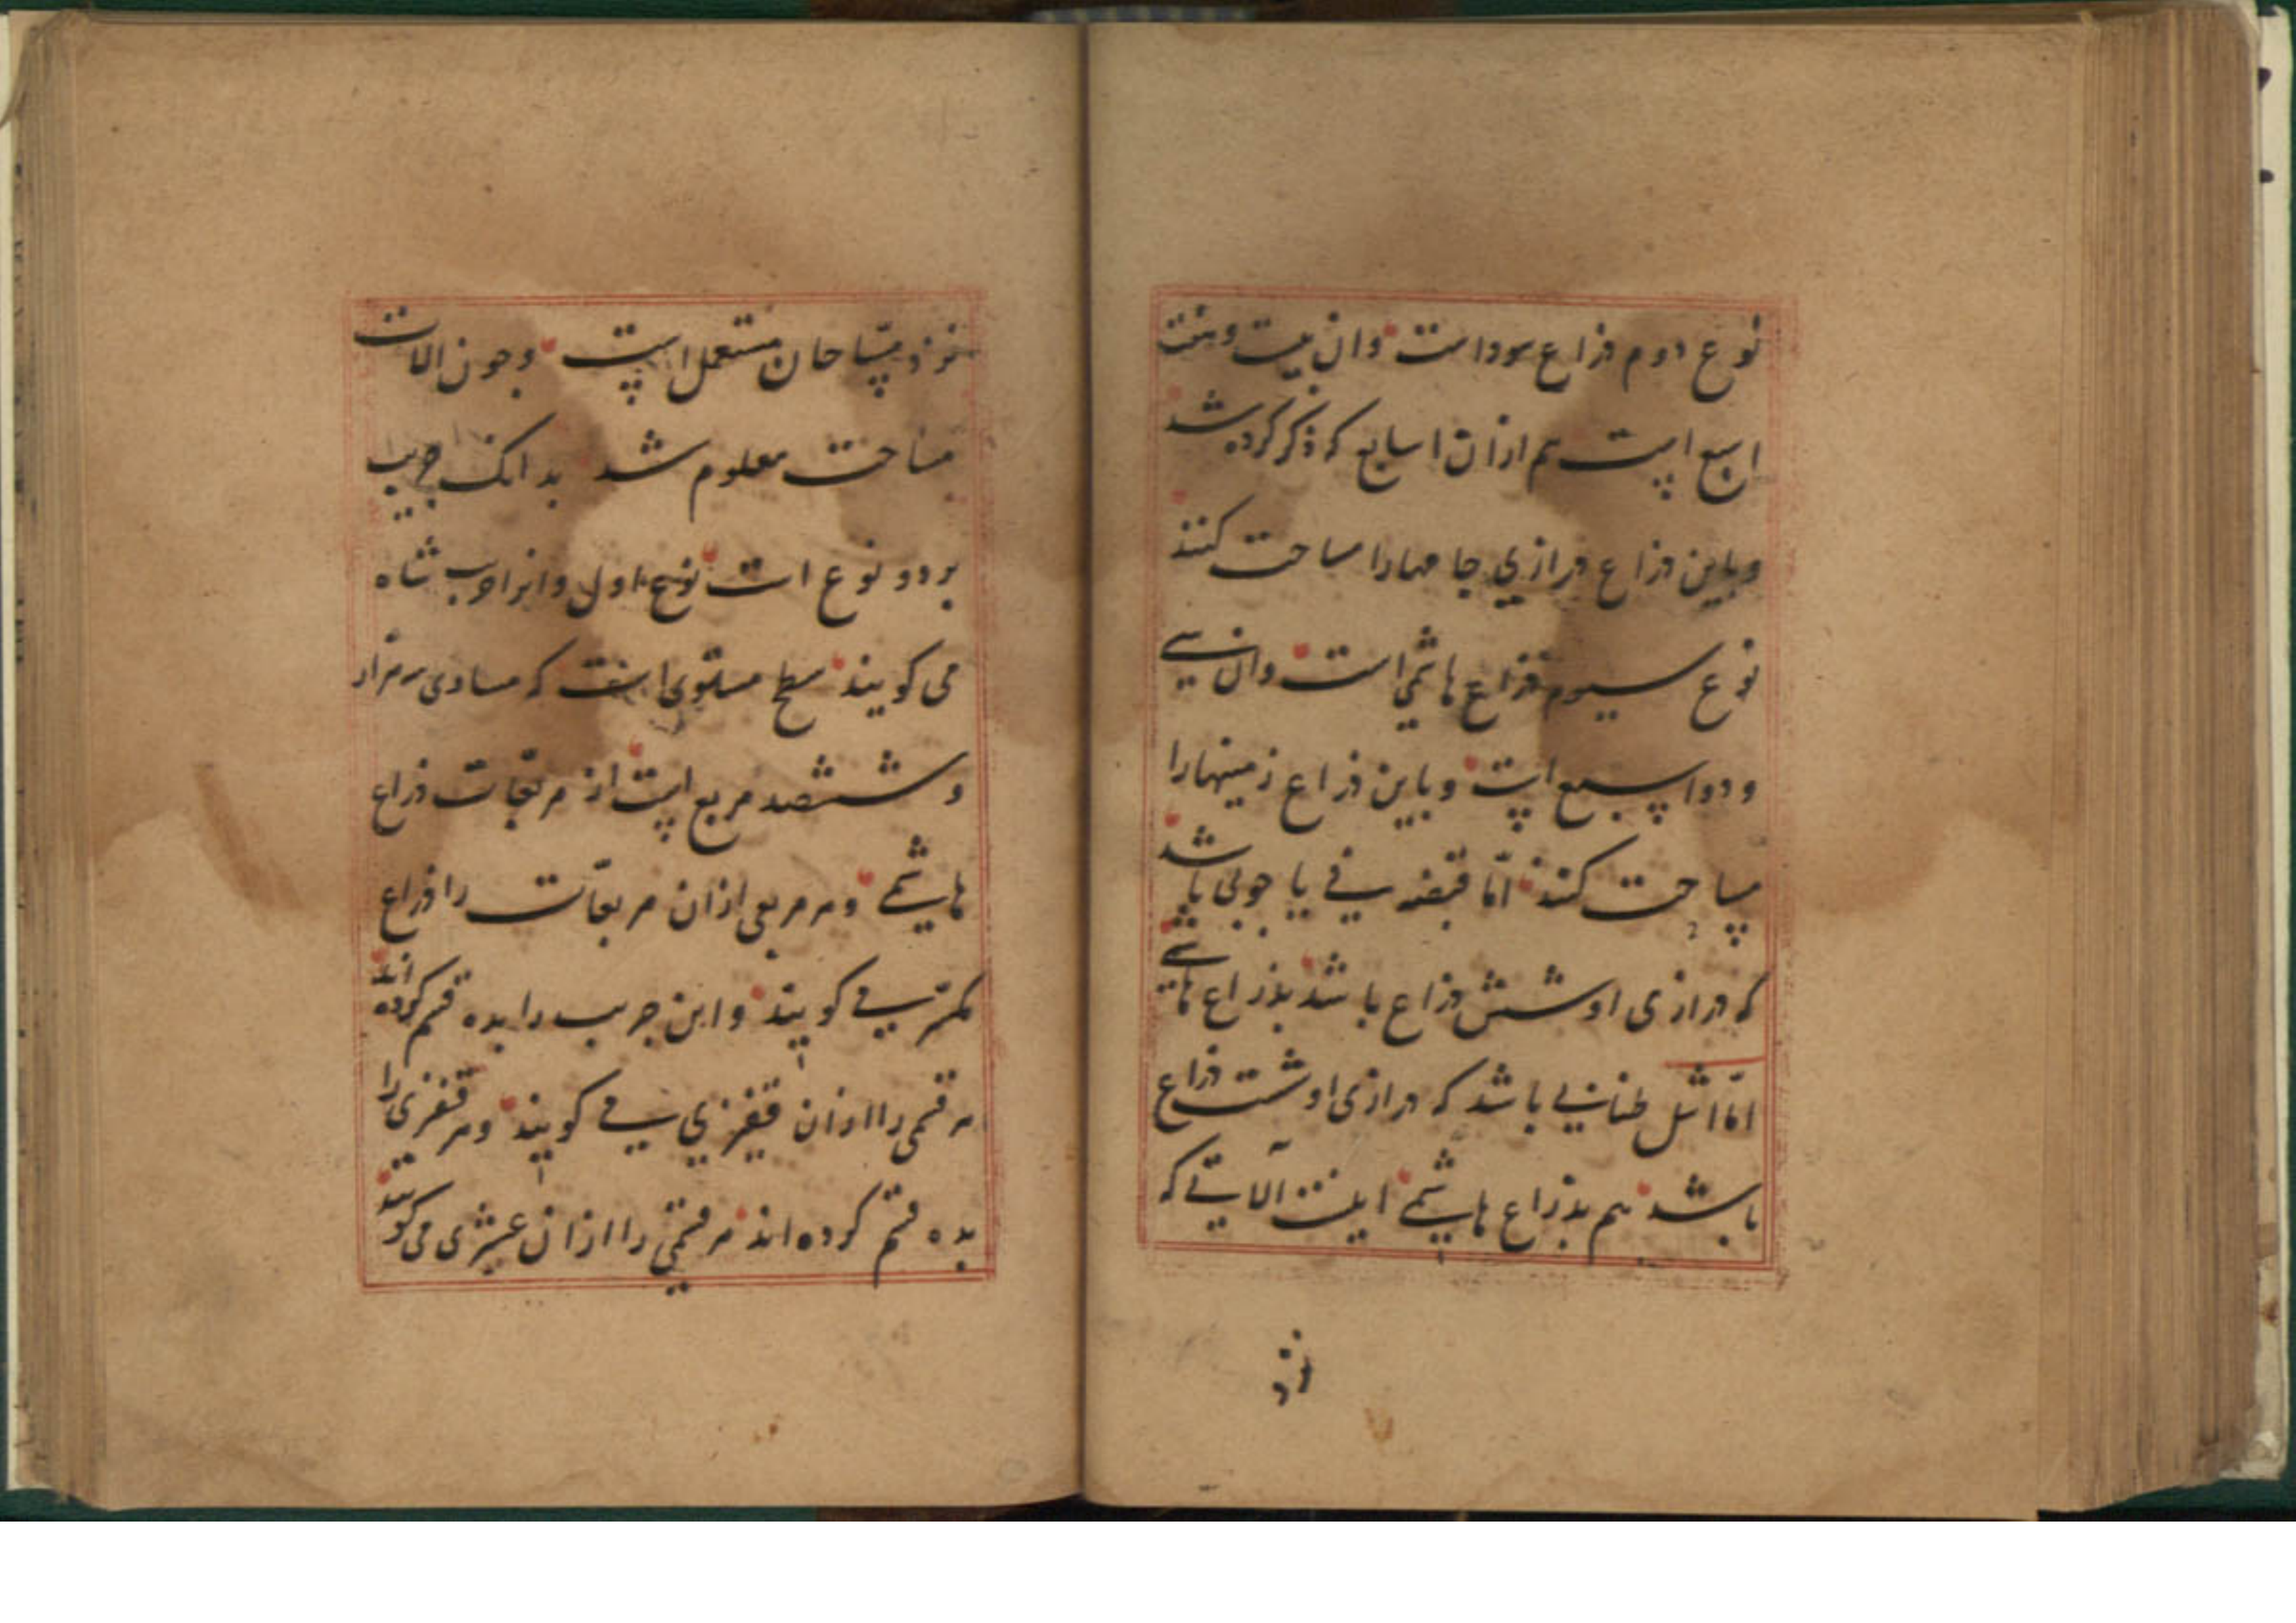 نوع دوم ذراع سوداست وان بیست و هفت
اصبع است هم ازان اسابع که ذکر کرده شد
و باین ذراع درازی جامهارا مساحت کنند
نوع سیوم ذراع هاشمی است وان سی
و دو اسبع است و باین ذراع زمینهارا
مساحت کنند امّا قبضه نی یا چوبی باشد
که درازی او شش ذراع باشد بذراع هاشمی
امّا اشل طنابی باشد که درازی او شست ذراع
باشد هم بذراع هاشمی اینست آلاتی که
نزد
نزد مسّاحان مستعمل است وجون الات
مساحت معلوم شد بدانک جریب
بر دو نوع است نوع اول وانرا جریب شاه
می کویند سطح مستوی است که مساوی سه هزار
و ششصد مربع است از مربّعات ذراع
هاشمی و هر مربعی ازان مربعات را ذراع
مکسّر می کویند و این جریب را بده قسم کرده اند
هر قسمی را ازان قفیزی می کویند و هر قفیزی را
بده قسم کرده اند هر قسمی را ازان عشیری می کویند